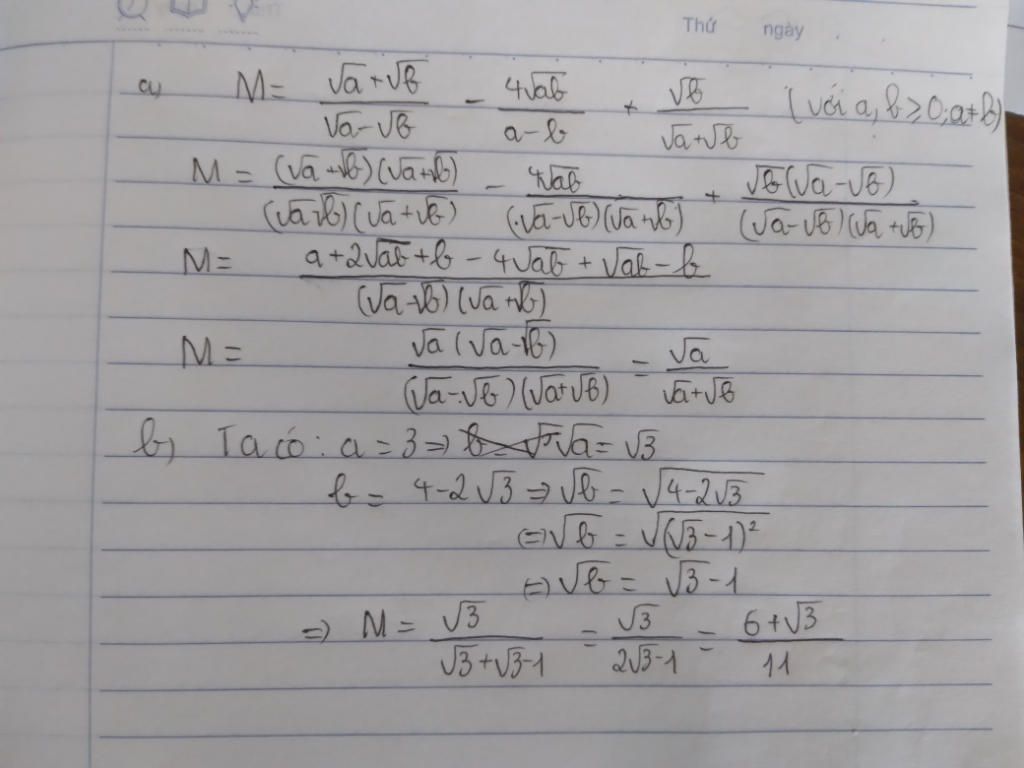 Thứ ngày
a) M = (√a + √b)/(√a - √b) - 4√ab/(a - b) + √b/(√a + √b) (với a, b ≥ 0; a ≠ b)
M = (√a + √b)(√a + √b)/(√a - √b)(√a + √b) - 4√ab/(√a - √b)(√a + √b) + √b(√a - √b)/(√a - √b)(√a + √b)
M = (a + 2√ab + b - 4√ab + √ab - b)/(√a - √b)(√a + √b)
M = √a(√a - √b)/(√a - √b)(√a + √b) = √a/(√a + √b)
b) Ta có: a = 3 => √a = √3
b = 4 - 2√3 => √b = √(4 - 2√3)
<=> √b = √((√3 - 1)²)
<=> √b = √3 - 1
=> M = √3/(√3 + √3 - 1) = √3/(2√3 - 1) = (6 + √3)/11